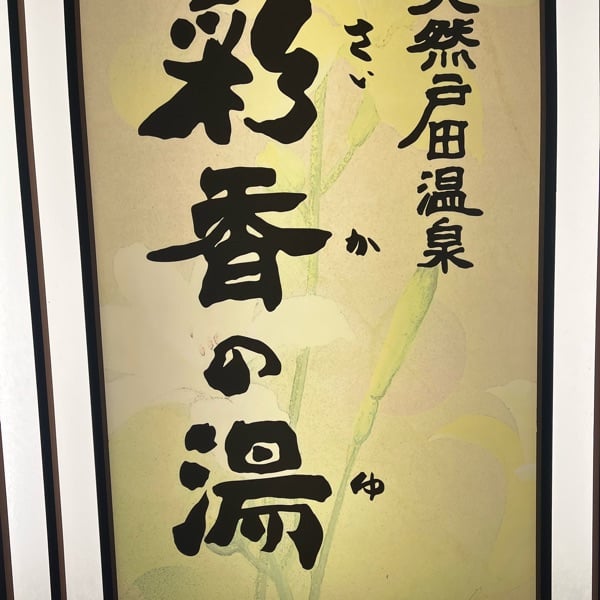 天然戸田温泉
さいかゆ
彩香の湯